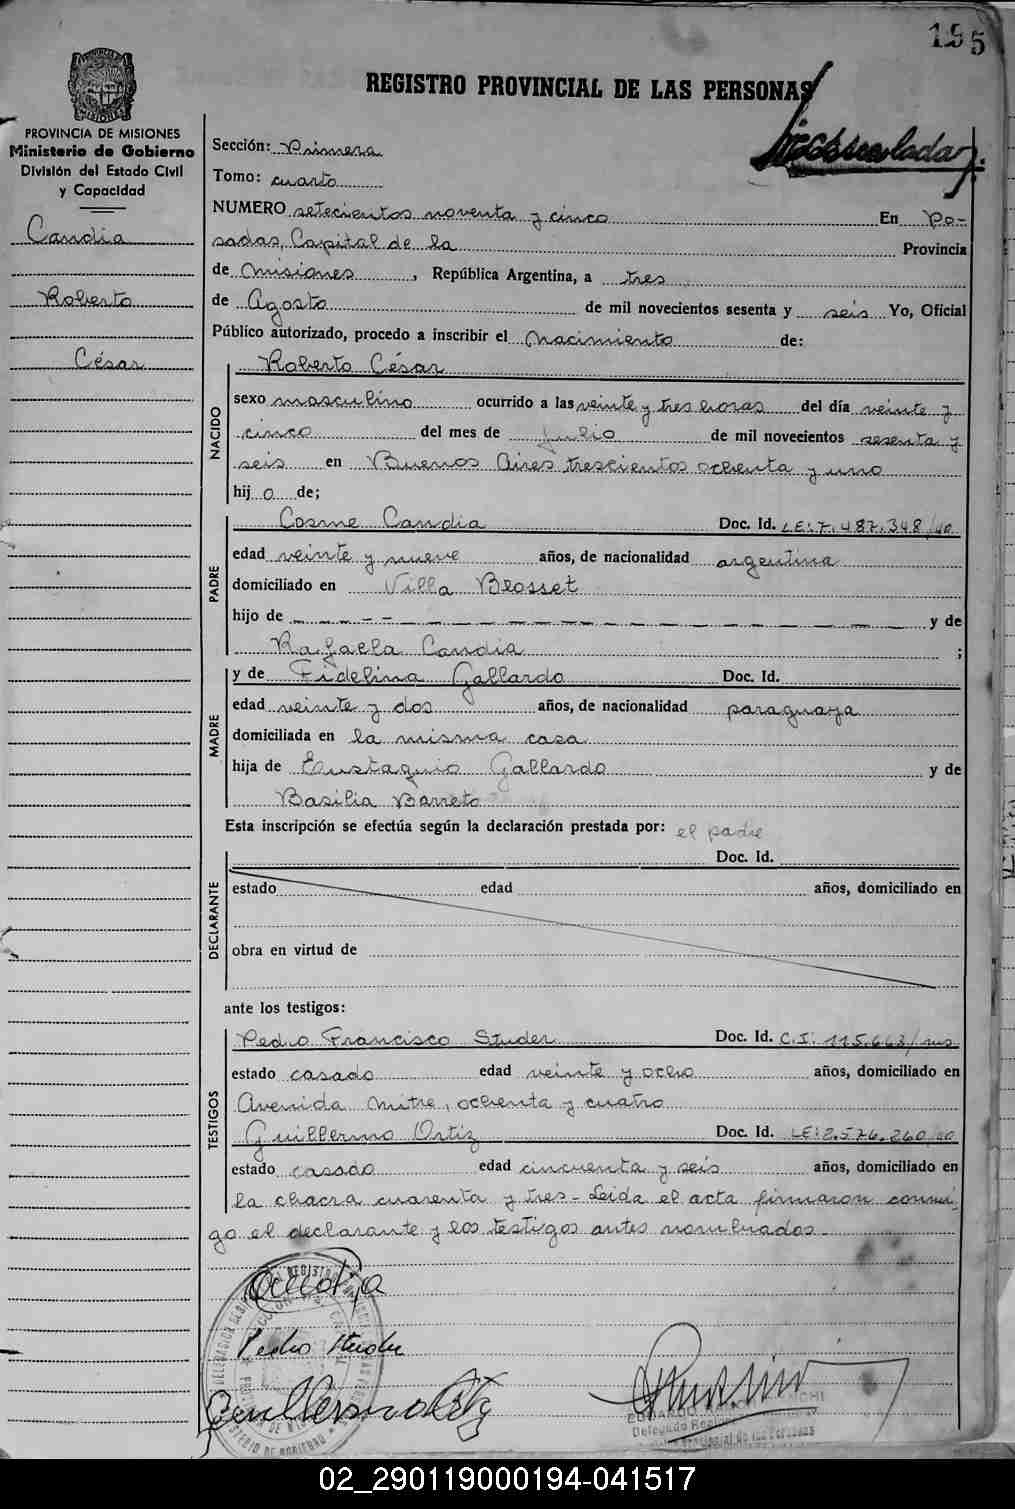 195
REGISTRO PROVINCIAL DE LAS PERSONAS
PROVINCIA DE MISIONES
Ministerio de Gobierno
División del Estado Civil
y Capacidad
Candia
Roberto
César
Sección: Primera
Tomo: cuarto
NUMERO setecientos noventa y cinco En Po-
sadas, Capital de la Provincia
de Misiones, República Argentina, a tres
de Agosto de mil novecientos sesenta y seis Yo, Oficial
Público autorizado, procedo a inscribir el Nacimiento de:
NACIDO
Roberto César
sexo masculino ocurrido a las veinte y tres horas del día veinte y
cinco del mes de julio de mil novecientos sesenta y
seis en Buenos Aires trescientos ochenta y uno
hijo de;
PADRE
Cosme Candia Doc. Id. LE: 7.487.348/
edad veinte y nueve años, de nacionalidad argentina
domiciliado en Villa Blosset
hijo de y de
Rafaela Candia ;
MADRE
y de Fidelina Gallardo Doc. Id.
edad veinte y dos años, de nacionalidad paraguaya
domiciliada en la misma casa
hija de Eustaquio Gallardo y de
Basilia Barreto
Esta inscripción se efectúa según la declaración prestada por: el padre
DECLARANTE
Doc. Id.
estado edad años, domiciliado en
obra en virtud de
ante los testigos:
TESTIGOS
Pedro Francisco Studer Doc. Id. C.I: 115.663/ms
estado casado edad veinte y ocho años, domiciliado en
Avenida Mitre, ochenta y cuatro
Guillermo Ortiz Doc. Id. LE: 2.576.260/
estado casado edad cincuenta y seis años, domiciliado en
la chacra cuarenta y tres - Leida el acta firmaron conmi-
go el declarante y los testigos antes nombrados.-
Candia
Pedro Studer
Guillermo Ortiz
02_290119000194-041517